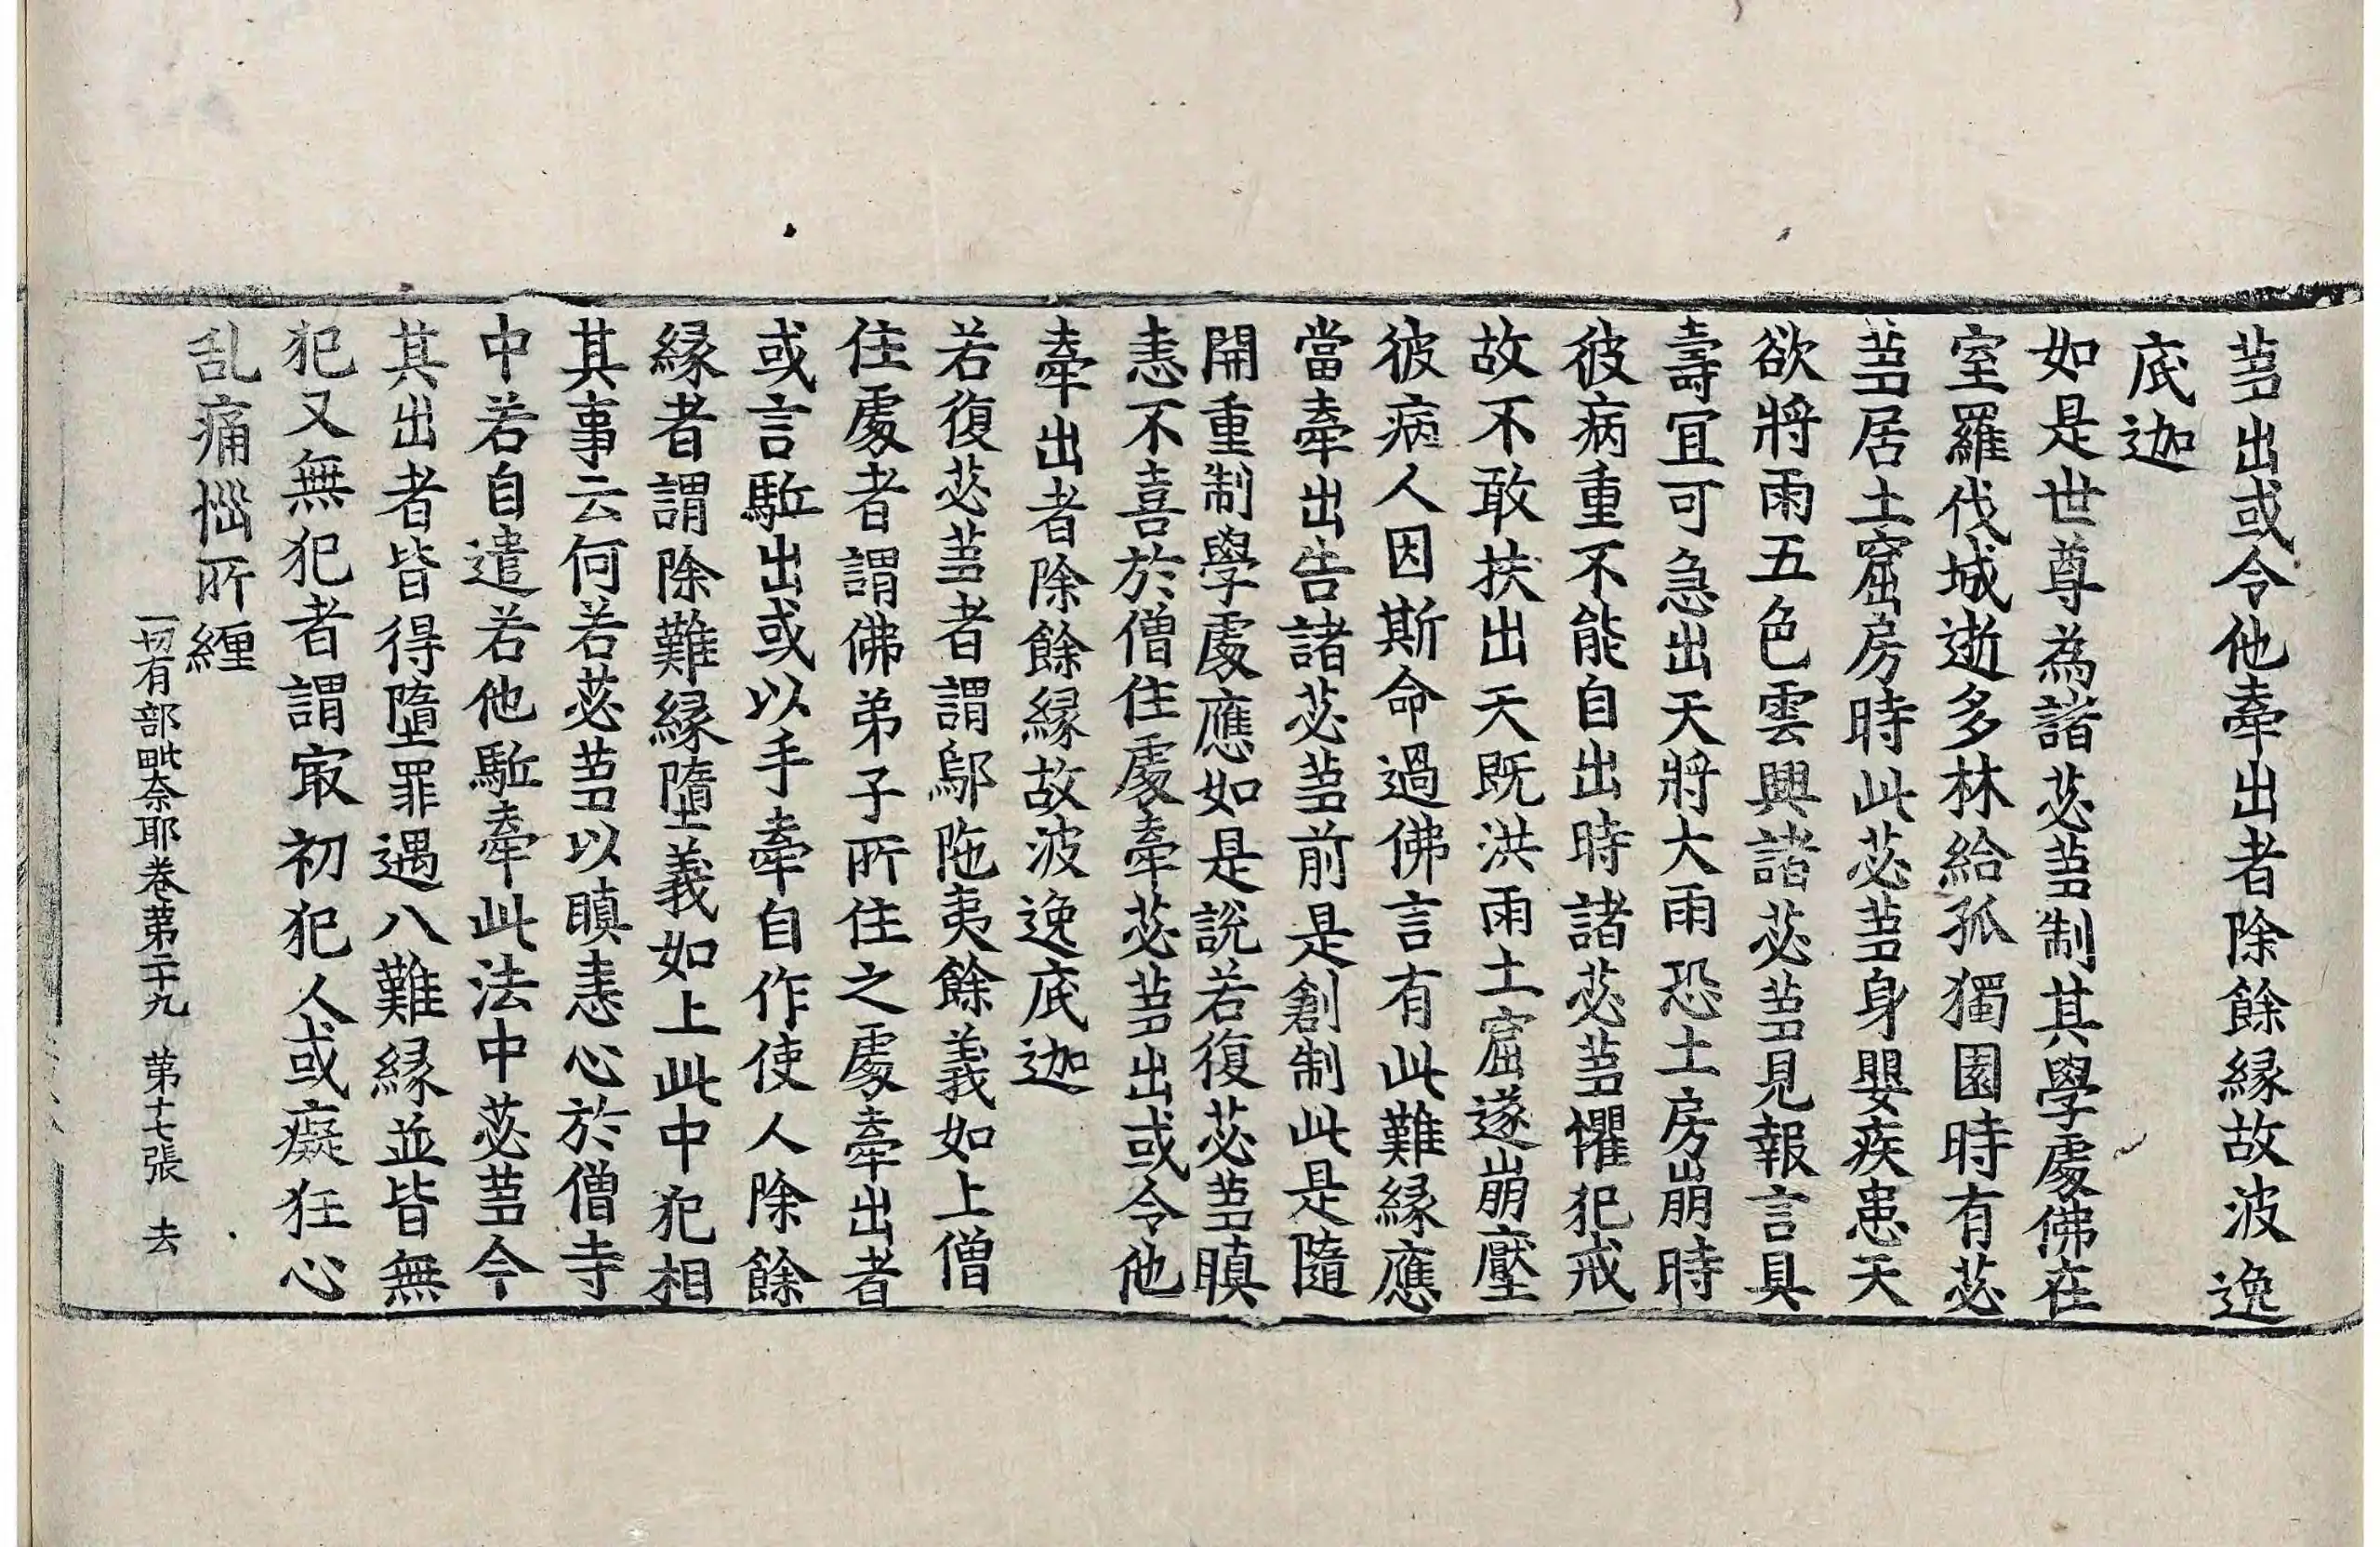 蒭出或令他牽出者除餘縁故波逸
底迦
如是世尊為諸苾蒭制其學處佛在
室羅伐城逝多林給孤獨園時有苾
蒭居土窟房時此苾蒭身嬰疾患天
欲將雨五色雲興諸苾蒭見報言具
壽冝可急出天將大雨恐土房崩時
彼病重不能自出時諸苾蒭懼犯戒
故不敢扶出天既洪雨土窟遂崩壓
彼病人因斯命過佛言有此難縁應
當牽出告諸苾蒭前是創制此是隨
開重制學處應如是說若復苾蒭瞋
恚不喜於僧住處牽苾蒭出或令他
牽出者除餘縁故波逸底迦
若復苾蒭者謂鄔陁夷餘義如上僧
住處者謂佛弟子所住之處牽出者
或言駈出或以手牽自作使人除餘
縁者謂除難縁墮義如上此中犯相
其事云何若苾蒭以瞋恚心於僧寺
中若自遣若他駈牽此法中苾蒭令
其出者皆得墮罪遇八難縁並皆無
犯又無犯者謂㝡初犯人或癡狂心
乱痛惱所纒
一切有部毗奈耶卷第二十九 第十七張 去